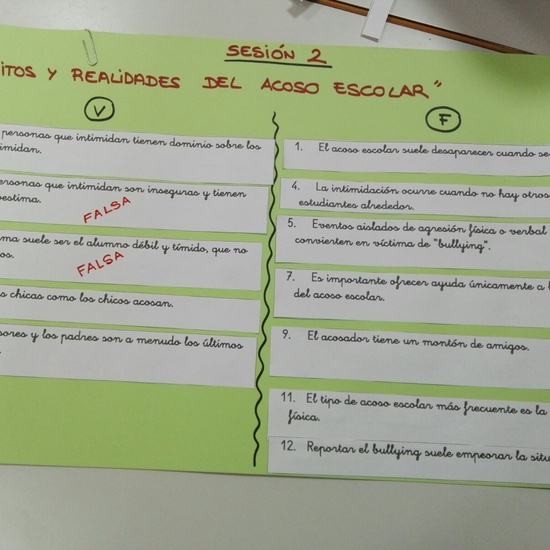 SESIÓN 2
ITOS Y REALIDADES DEL ACOSO ESCOLAR"
V
personas que intimidan tienen dominio sobre los
imidan.
ersonas que intimidan son inseguras y tienen
oestima.
FALSA
ma suele ser el alumno débil y tímido, que no
os.
FALSA
s chicas como los chicos acosan.
sores y los padres son a menudo los últimos
F
1. El acoso escolar suele desaparecer cuando se
4. La intimidación ocurre cuando no hay otros
estudiantes alrededor.
5. Eventos aislados de agresión física o verbal
convierten en víctima de "bullying".
7. Es importante ofrecer ayuda únicamente a
del acoso escolar.
9. El acosador tiene un montón de amigos.
11. El tipo de acoso escolar más frecuente es la
física.
12. Reportar el bullying suele empeorar la situ